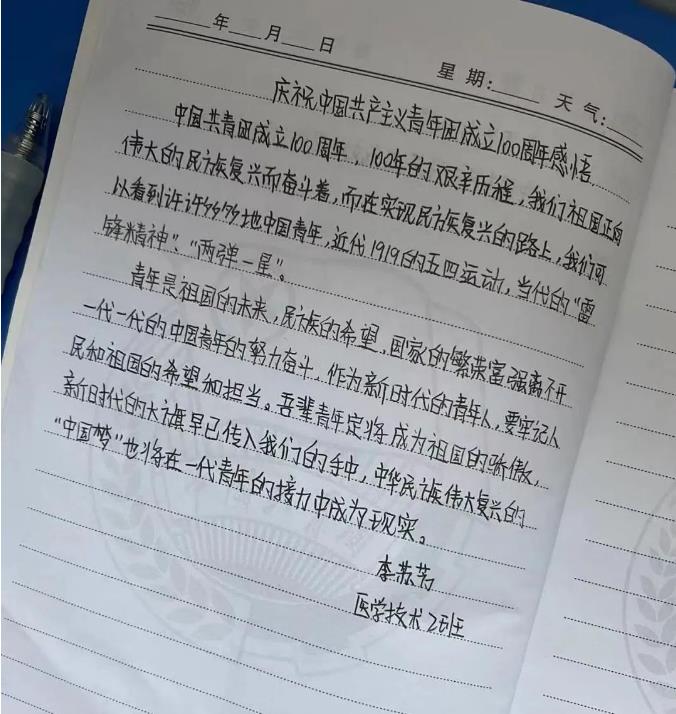 ____年___月___日 星期:____ 天气:____
庆祝中国共产主义青年团成立100周年感悟
中国共青团成立100周年，100年的艰辛历程，我们祖国正向
伟大的民族复兴而奋斗着，而在实现民族复兴的路上，我们可
以看到许许多多地中国青年，近代1919的五四运动，当代的“雷
锋精神”、“两弹一星”。
青年是祖国的未来，民族的希望，国家的繁荣富强离不开
一代一代的中国青年的努力奋斗，作为新时代的青年人，要牢记人
民和祖国的希望和担当。吾辈青年定将成为祖国的骄傲，
新时代的大旗早已传入我们的手中，中华民族伟大复兴的
“中国梦”也将在一代青年的接力中成为现实。
李芳
医学技术2班